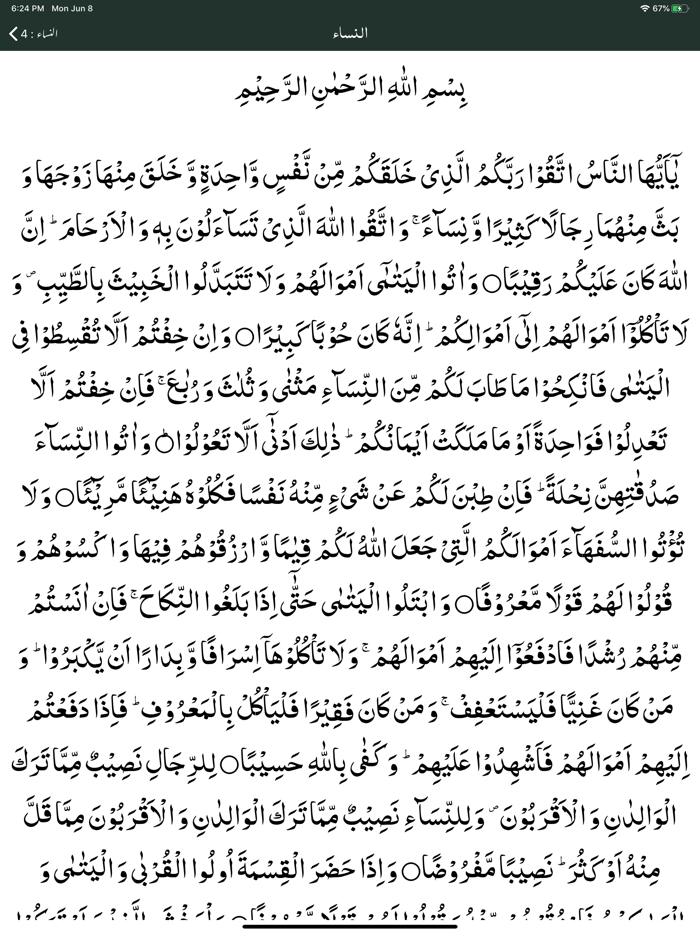 6:24 PM Mon Jun 8 67%
النساء : 4 النساء
بِسْمِ اللّٰهِ الرَّحْمٰنِ الرَّحِيْمِ
يٰۤاَيُّهَا النَّاسُ اتَّقُوْا رَبَّكُمُ الَّذِىْ خَلَقَكُمْ مِّنْ نَّفْسٍ وَّاحِدَةٍ وَّخَلَقَ مِنْهَا زَوْجَهَا وَ
بَثَّ مِنْهُمَا رِجَالًا كَثِيْرًا وَّنِسَآءً‌ ۚ وَاتَّقُوا اللّٰهَ الَّذِىْ تَسَآءَلُوْنَ بِهٖ وَالْاَرْحَامَ‌ ؕ اِنَّ
اللّٰهَ كَانَ عَلَيْكُمْ رَقِيْبًا○ وَاٰتُوا الْيَتٰمٰٓى اَمْوَالَهُمْ وَلَا تَتَبَدَّلُوا الْخَبِيْثَ بِالطَّيِّبِ ۖ وَ
لَا تَاْكُلُوْۤا اَمْوَالَهُمْ اِلٰٓى اَمْوَالِكُمْ‌ ؕ اِنَّهٗ كَانَ حُوْبًا كَبِيْرًا○ وَاِنْ خِفْتُمْ اَلَّا تُقْسِطُوْا فِى
الْيَتٰمٰى فَانْكِحُوْا مَا طَابَ لَكُمْ مِّنَ النِّسَآءِ مَثْنٰى وَثُلٰثَ وَرُبٰعَ‌ ۚ فَاِنْ خِفْتُمْ اَلَّا
تَعْدِلُوْا فَوَاحِدَةً اَوْ مَا مَلَكَتْ اَيْمَانُكُمْ‌ ؕ ذٰلِكَ اَدْنٰٓى اَلَّا تَعُوْلُوْا○ وَاٰتُوا النِّسَآءَ
صَدُقٰتِهِنَّ نِحْلَةً‌ ؕ فَاِنْ طِبْنَ لَكُمْ عَنْ شَىْءٍ مِّنْهُ نَفْسًا فَكُلُوْهُ هَنِيْٓئًا مَّرِيْٓئًا○ وَلَا
تُؤْتُوا السُّفَهَآءَ اَمْوَالَكُمُ الَّتِىْ جَعَلَ اللّٰهُ لَكُمْ قِيٰمًا وَّارْزُقُوْهُمْ فِيْهَا وَاكْسُوْهُمْ وَ
قُوْلُوْا لَهُمْ قَوْلًا مَّعْرُوْفًا○ وَابْتَلُوا الْيَتٰمٰى حَتّٰٓى اِذَا بَلَغُوا النِّكَاحَ‌ ۚ فَاِنْ اٰنَسْتُمْ
مِّنْهُمْ رُشْدًا فَادْفَعُوْۤا اِلَيْهِمْ اَمْوَالَهُمْ‌ ۚ وَلَا تَاْكُلُوْهَاۤ اِسْرَافًا وَّبِدَارًا اَنْ يَّكْبَرُوْا‌ ؕ وَ
مَنْ كَانَ غَنِيًّا فَلْيَسْتَعْفِفْ‌ ۚ وَمَنْ كَانَ فَقِيْرًا فَلْيَاْكُلْ بِالْمَعْرُوْفِ‌ ؕ فَاِذَا دَفَعْتُمْ
اِلَيْهِمْ اَمْوَالَهُمْ فَاَشْهِدُوْا عَلَيْهِمْ‌ ؕ وَكَفٰى بِاللّٰهِ حَسِيْبًا○ لِلرِّجَالِ نَصِيْبٌ مِّمَّا تَرَكَ
الْوَالِدٰنِ وَالْاَقْرَبُوْنَ ۖ وَلِلنِّسَآءِ نَصِيْبٌ مِّمَّا تَرَكَ الْوَالِدٰنِ وَالْاَقْرَبُوْنَ مِمَّا قَلَّ
مِنْهُ اَوْ كَثُرَ‌ ؕ نَصِيْبًا مَّفْرُوْضًا○ وَاِذَا حَضَرَ الْقِسْمَةَ اُولُوا الْقُرْبٰى وَالْيَتٰمٰى وَ